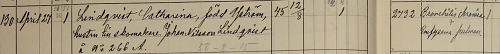 130 April 27 1 Lindqvist, Catharina, född Yström, 45 12/8 1 2732 Bronchitis chronica
hustru till skomakare Johan Nilsson Lindqvist Emphysema pulmon.
å No 266 A.